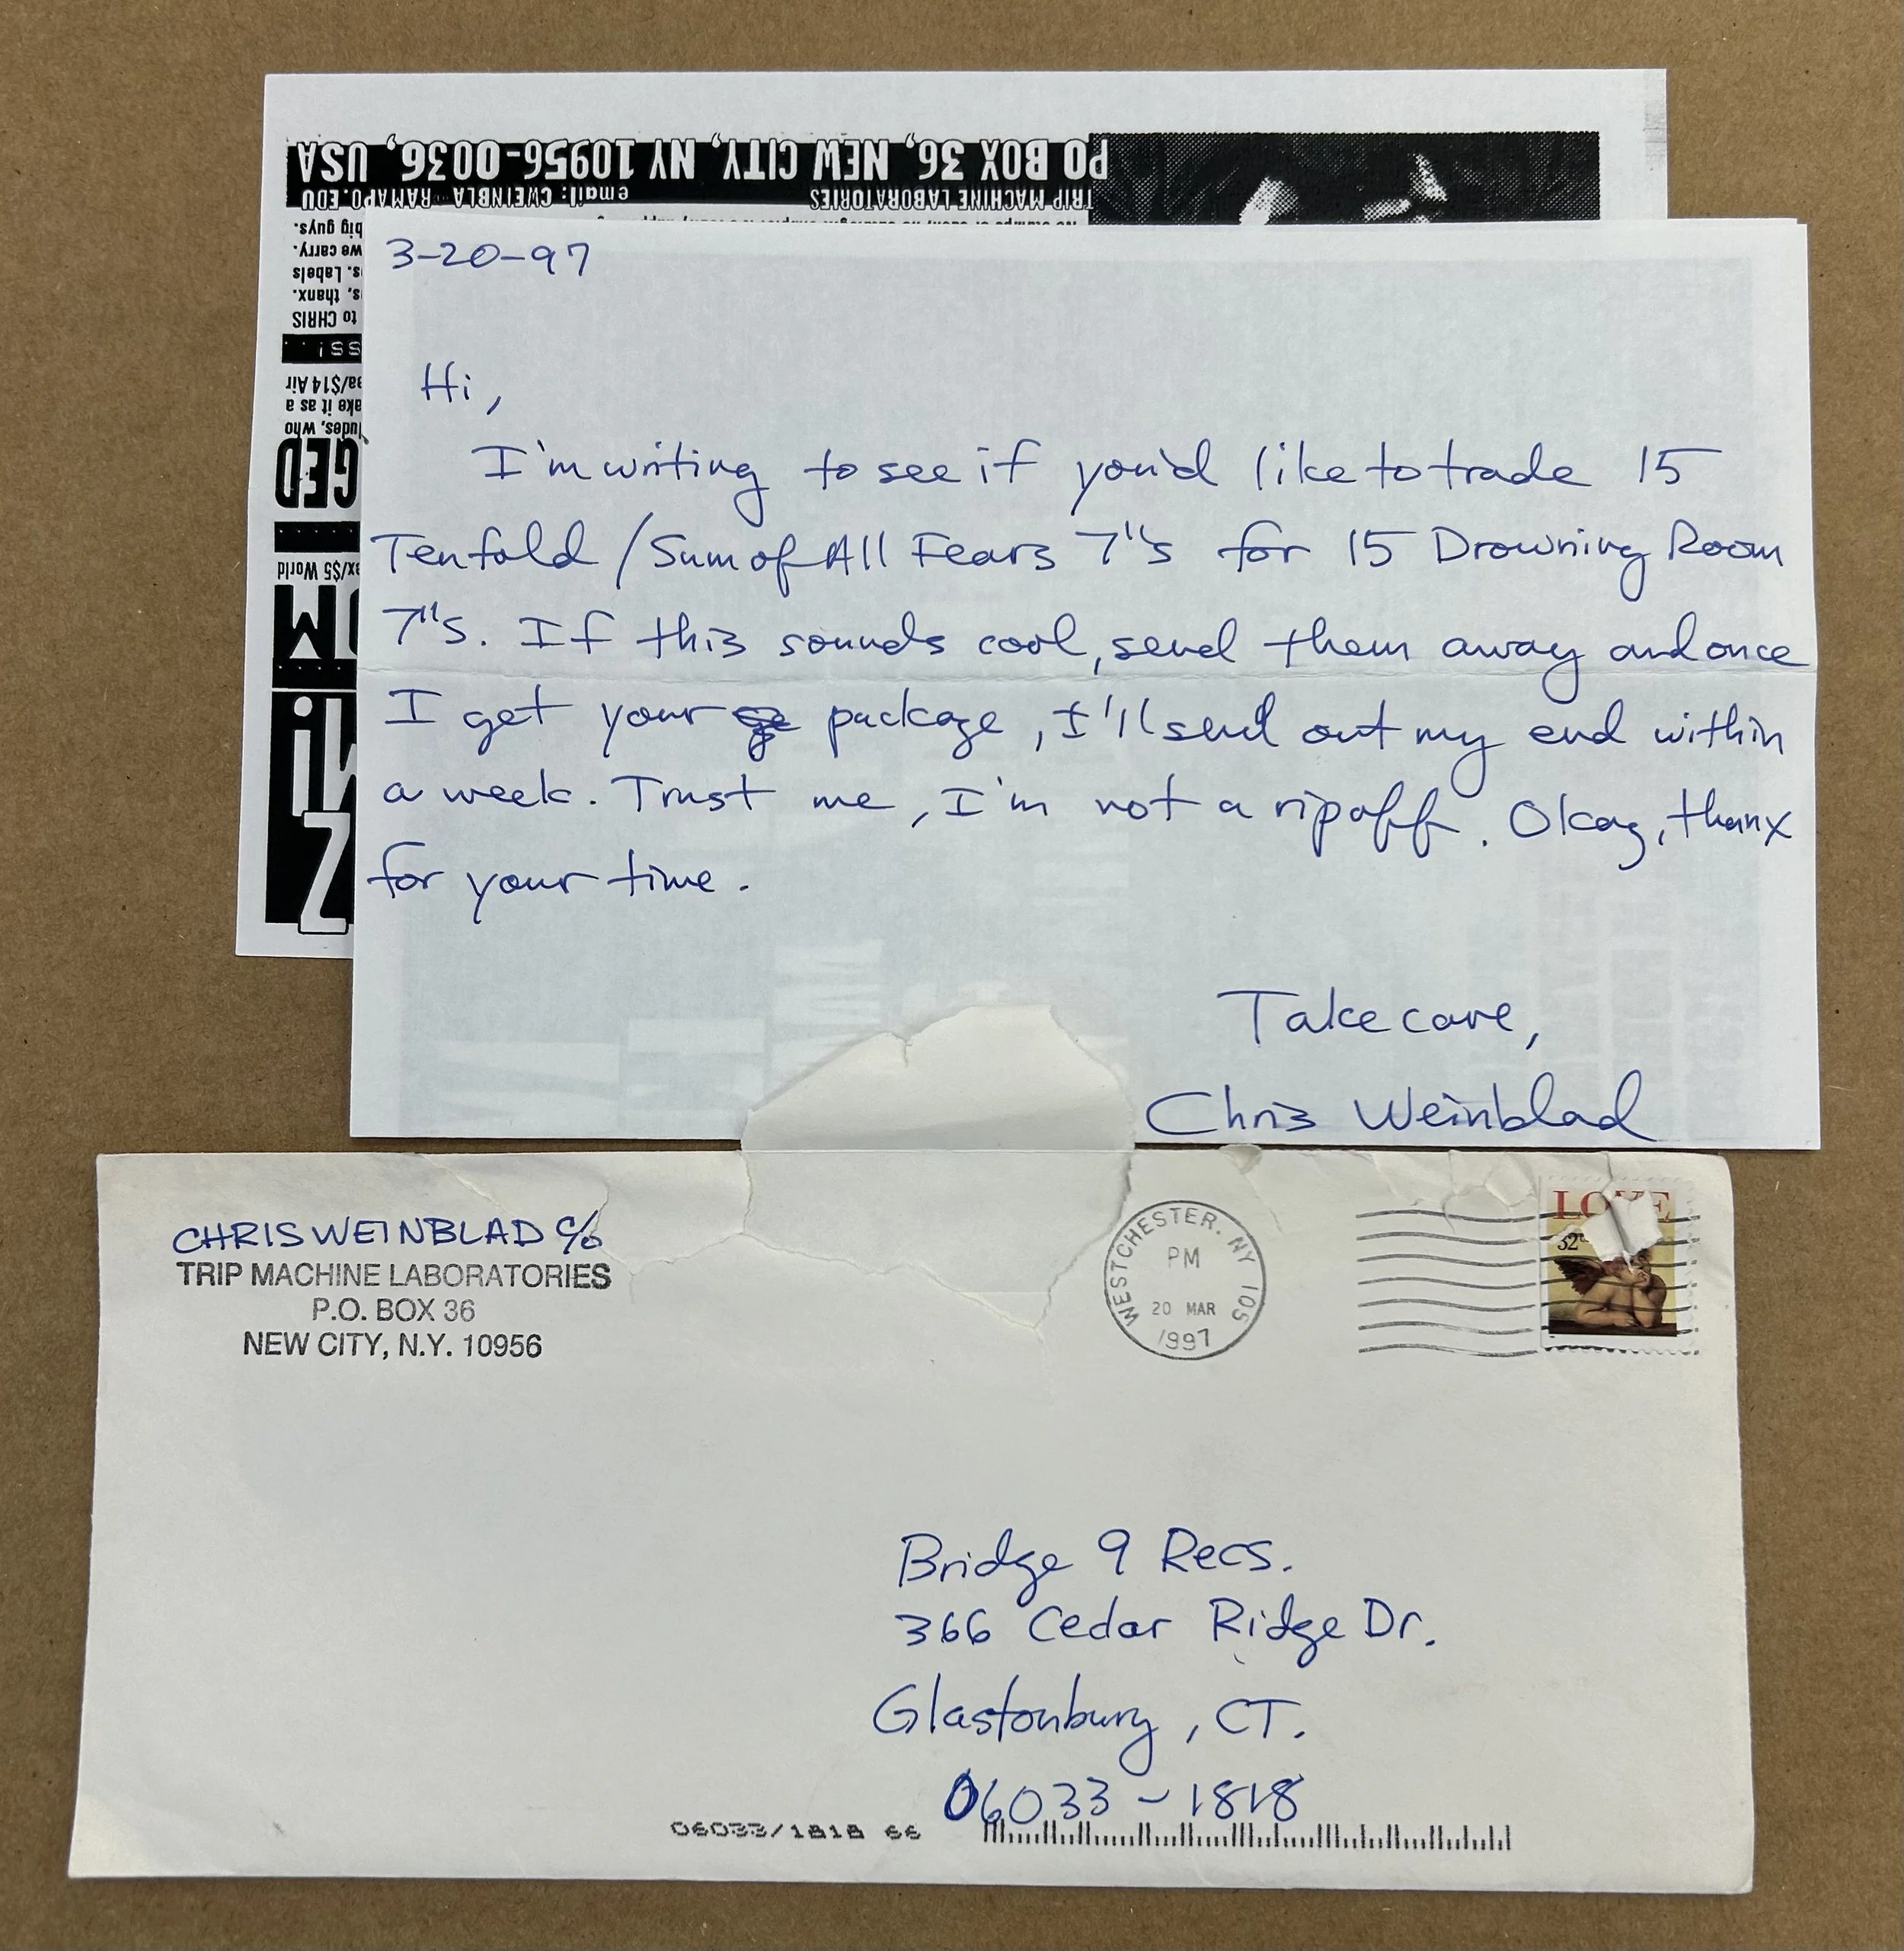 PO BOX 36, NEW CITY, NY 10956-0036, USA
TRIP MACHINE LABORATORIES email: CWEINBLA RAMAPO.EDU
big guys.
we carry.
s. Labels
s, thanx.
to CHRIS
SS!
ea/$14 Air
ake it as a
ludes, who
GED
ex/$5 World
3-20-97
Hi,
I'm writing to see if you'd like to trade 15
Tenfold/Sum of All Fears 7"s for 15 Drowning Room
7"s. If this sounds cool, send them away and once
I get your package, I'll send out my end within
a week. Trust me, I'm not a ripoff. Okay, thanx
for your time.
Take care,
Chris Weinblad
CHRIS WEINBLAD c/o
TRIP MACHINE LABORATORIES
P.O. BOX 36
NEW CITY, N.Y. 10956
WESTCHESTER. NY 105
PM
20 MAR
1997
LOVE
32
Bridge 9 Recs.
366 Cedar Ridge Dr.
Glastonbury, CT.
06033-1818
06033/1818 66